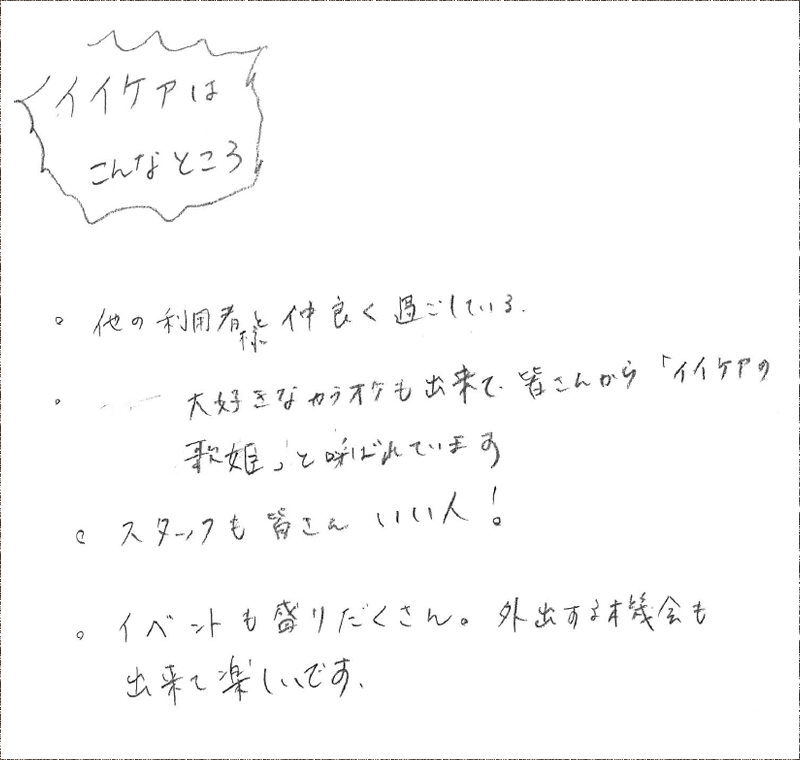 イイケアは
こんなところ
。他の利用者様と仲良く過ごしている.
。大好きなカラオケも出来て、皆さんから「イイケアの
歌姫」と呼ばれています
。スタッフも皆さん いい人！
。イベントも盛りだくさん。外出する機会も
出来て楽しいです.